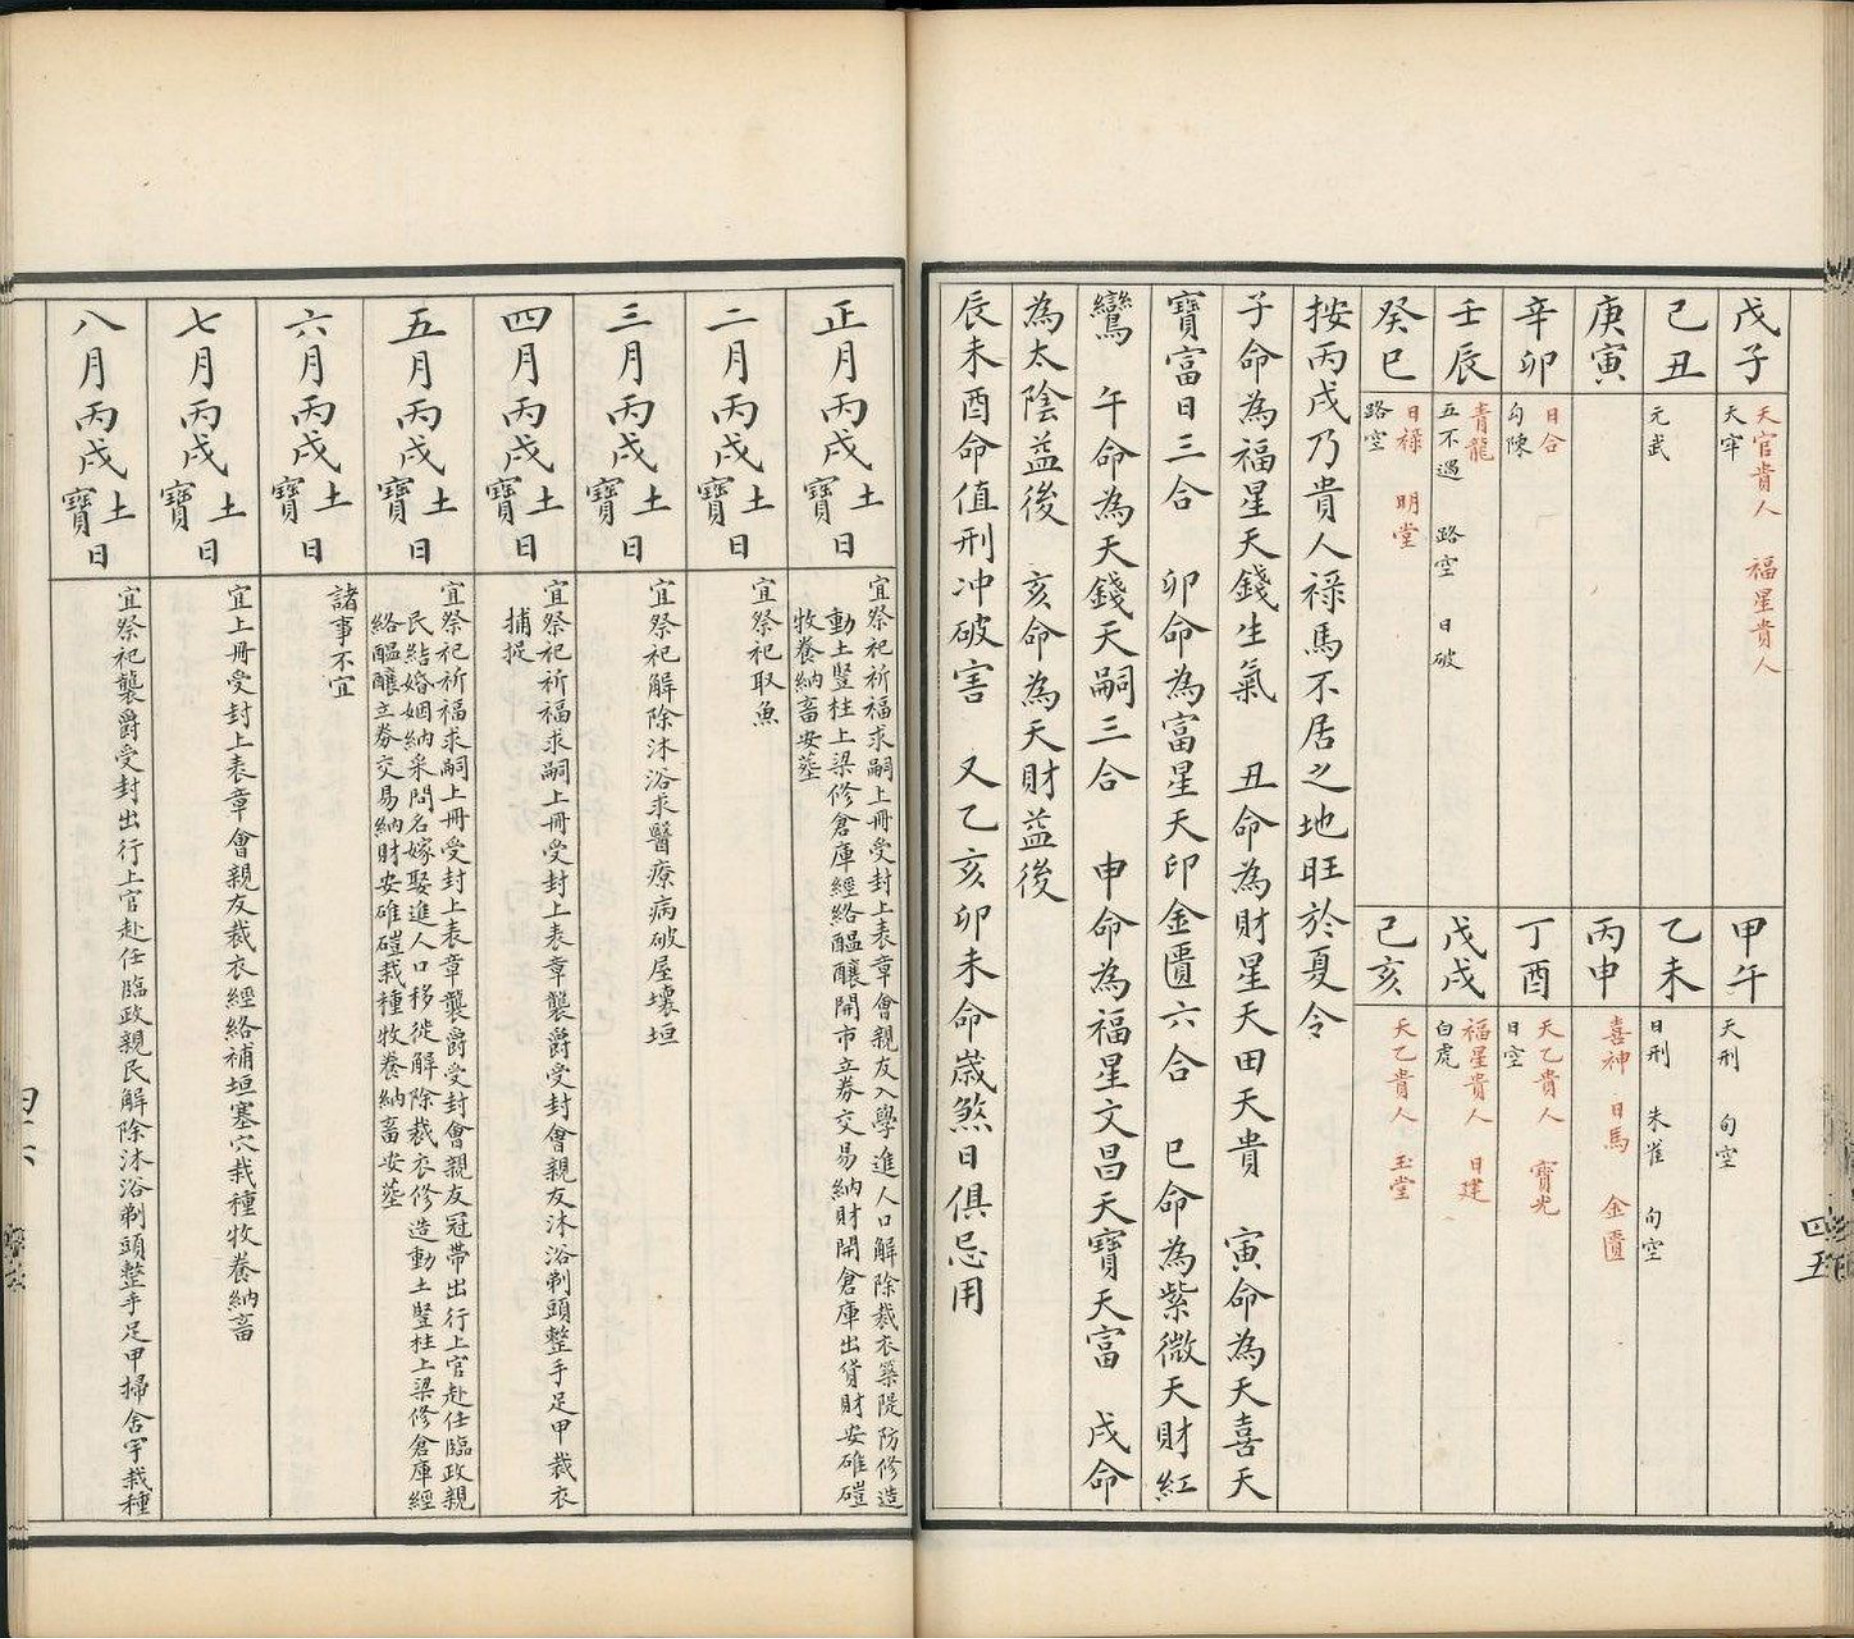 戊子
天官貴人 福星貴人
天牢
甲午
天刑 旬空
己丑
元武
乙未
日刑 朱雀 旬空
庚寅
丙申
喜神 日馬 金匱
辛卯
日合
勾陳
丁酉
天乙貴人 寶光
日空
壬辰
青龍
五不遇 路空 日破
戊戌
福星貴人 日建
白虎
癸巳
日祿 明堂
路空
己亥
天乙貴人 玉堂
按丙戌乃貴人祿馬不居之地旺於夏令
子命為福星天錢生氣 丑命為財星天田天貴 寅命為天喜天
寶富日三合 卯命為富星天印金匱六合 巳命為紫微天財紅
鸞 午命為天錢天嗣三合 申命為福星文昌天寶天富 戌命
為太陰益後 亥命為天財益後
辰未酉命值刑冲破害 又乙亥卯未命歲煞日俱忌用
四五
正月丙戌土寶日
宜祭祀祈福求嗣上冊受封上表章會親友入學進人口解除裁衣築隄防修造
動土豎柱上梁修倉庫經絡醞釀開市立券交易納財開倉庫出貨財安碓磑
牧養納畜安葬
二月丙戌土寶日
宜祭祀取魚
三月丙戌土寶日
宜祭祀解除沐浴求醫療病破屋壞垣
四月丙戌土寶日
宜祭祀祈福求嗣上冊受封上表章襲爵受封會親友沐浴剃頭整手足甲裁衣
捕捉
五月丙戌土寶日
宜祭祀祈福求嗣上冊受封上表章襲爵受封會親友冠帶出行上官赴任臨政親
民結婚姻納采問名嫁娶進人口移徙解除裁衣修造動土豎柱上梁修倉庫經
絡醞釀立券交易納財安碓磑栽種牧養納畜安葬
六月丙戌土寶日
諸事不宜
七月丙戌土寶日
宜上冊受封上表章會親友裁衣經絡補垣塞穴栽種牧養納畜
八月丙戌土寶日
宜祭祀襲爵受封出行上官赴任臨政親民解除沐浴剃頭整手足甲掃舍宇栽種
四六